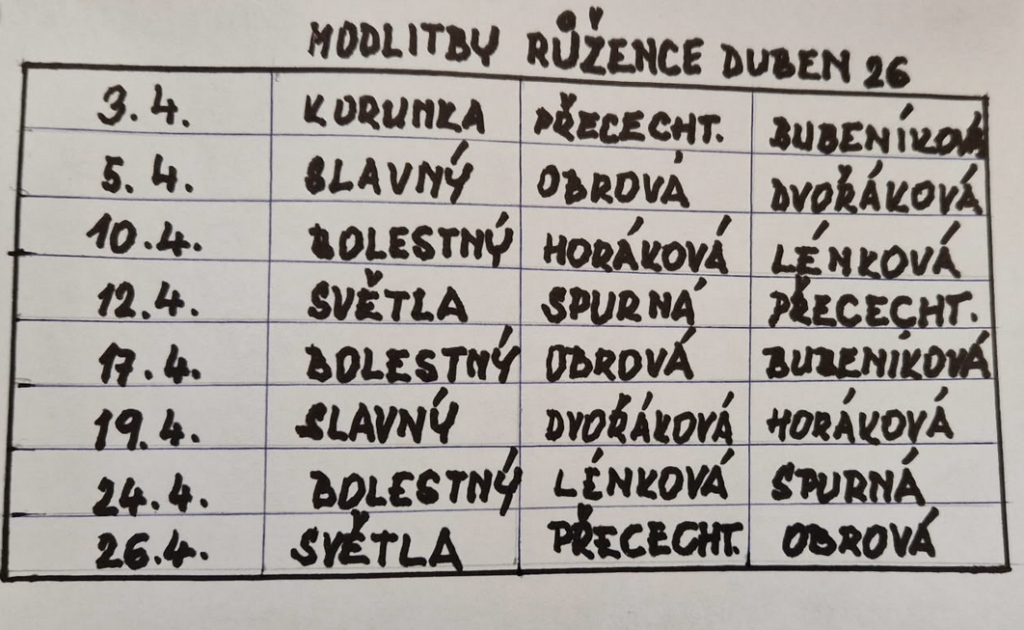 MODLITBY RŮŽENCE DUBEN 26
3.4. KORUNKA PŘECECHT. BUBENÍKOVÁ
5.4. SLAVNÝ OBROVÁ DVOŘÁKOVÁ
10.4. BOLESTNÝ HORÁKOVÁ LÉNKOVÁ
12.4. SVĚTLA SPURNÁ PŘECECHT.
17.4. BOLESTNÝ OBROVÁ BUBENÍKOVÁ
19.4. SLAVNÝ DVOŘÁKOVÁ HORÁKOVÁ
24.4. BOLESTNÝ LÉNKOVÁ SPURNÁ
26.4. SVĚTLA PŘECECHT. OBROVÁ